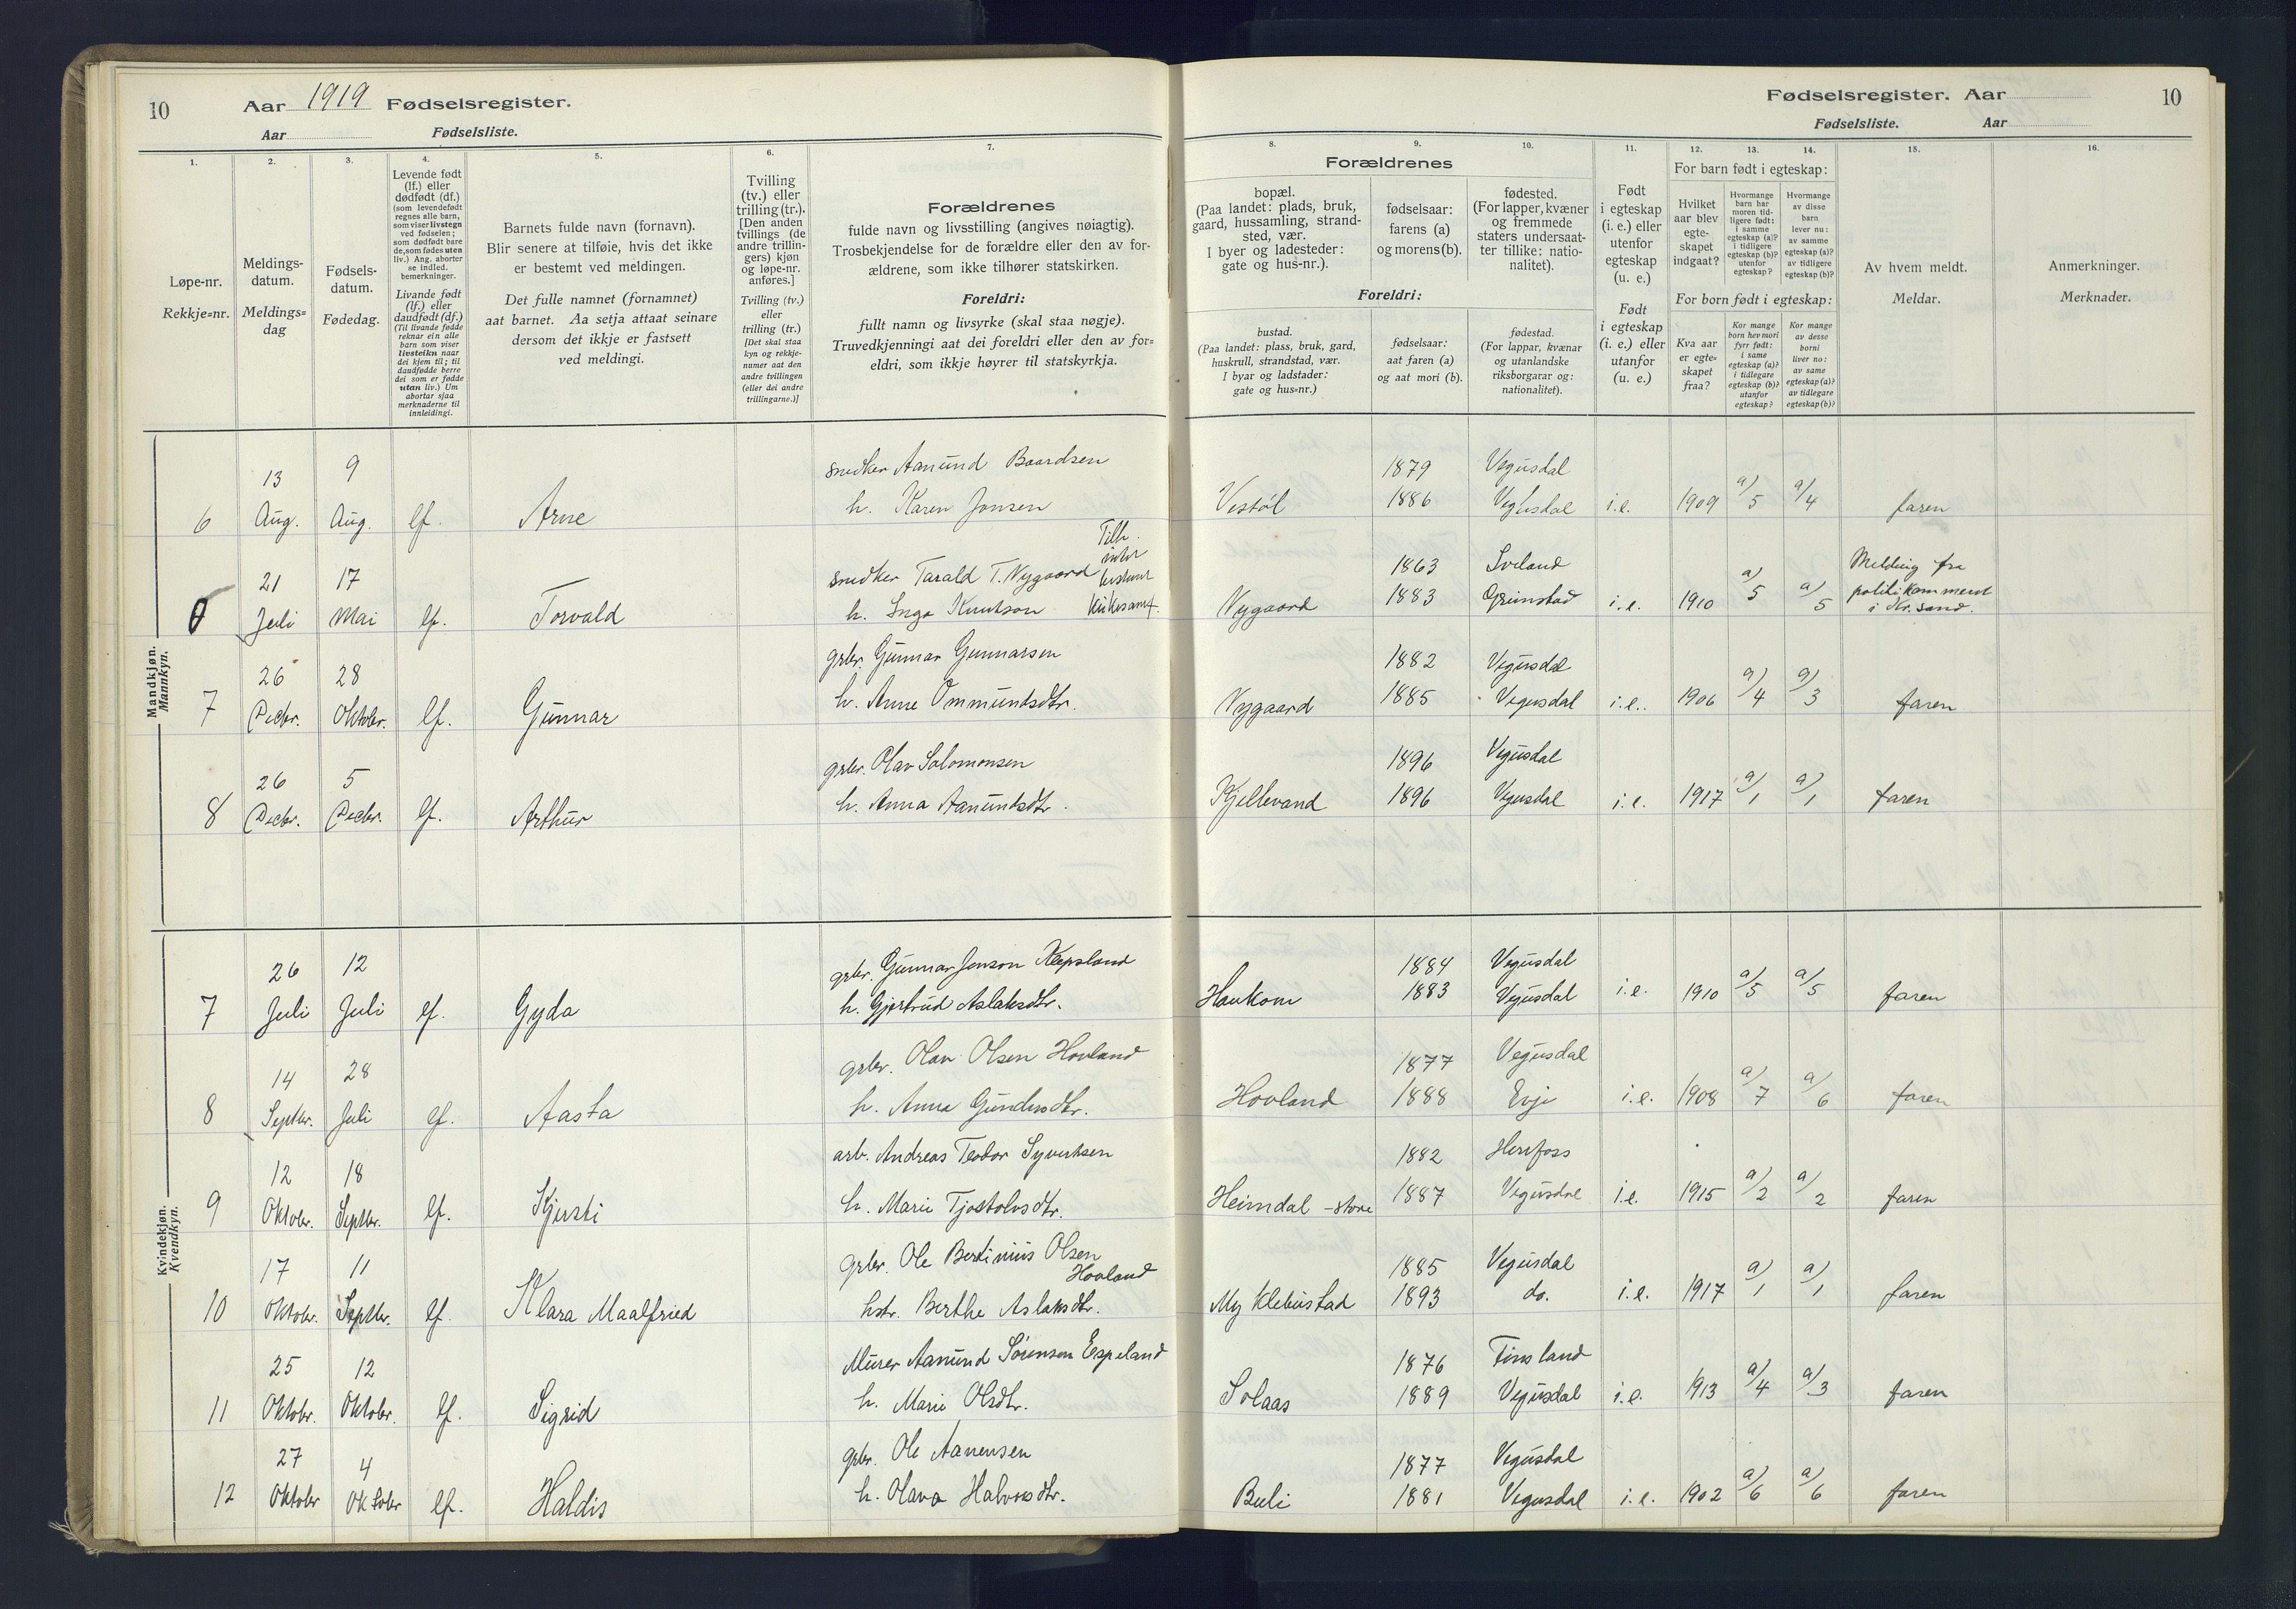 10
Aar 1919 Fødselsregister.
Aar Fødselsliste.
1.
Løpe-nr.
Rekkje=nr.
2.
Meldings-
datum.
Meldings=
dag
3.
Fødsels-
datum.
Fødedag.
4.
Levende født
(lf.) eller
dødfødt (df.)
(som levendefødt
regnes alle barn,
som viser livstegn
ved fødselen;
som dødfødt bare
de, som fødes uten
liv.) Ang. aborter
se indled.
bemerkninger.
Livande født
(lf.) eller
daudfødt (df.)
(Til livande fødde
reknar ein alle
barn som viser
livsteikn naar
dei kjem til; til
daudfødde berre
dei som er fødde
utan liv.) Um
abortar sjaa
merknaderne til
innleidingi.
5.
Barnets fulde navn (fornavn).
Blir senere at tilføie, hvis det ikke
er bestemt ved meldingen.
Det fulle namnet (fornamnet)
aat barnet. Aa setja attaat seinare
dersom det ikkje er fastsett
ved meldingi.
6.
Tvilling
(tv.) eller
trilling (tr.).
[Den anden
tvillings (de
andre trillin-
gers) kjøn
og løpe-nr.
anføres.]
Tvilling (tv.)
eller
trilling (tr.)
[Det skal staa
kyn og rekkje-
numer aat den
andre tvillingen
(eller dei andre
trillingarne.)]
7.
Forældrenes
fulde navn og livsstilling (angives nøiagtig).
Trosbekjendelse for de forældre eller den av for-
ældrene, som ikke tilhører statskirken.
Foreldri:
fullt namn og livsyrke (skal staa nøgje).
Truvedkjenningi aat dei foreldri eller den av for=
eldri, som ikkje høyrer til statskyrkja.
Fødselsregister. Aar 10
Fødselsliste. Aar
8. 9. 10.
Forældrenes
bopæl.
(Paa landet: plads, bruk,
gaard, hussamling, strand-
sted, vær.
I byer og ladesteder:
gate og hus-nr.).
fødselsaar:
farens (a)
og morens (b).
fødested.
(For lapper, kvæner
og fremmede
staters undersaat-
ter tillike: natio-
nalitet).
Foreldri:
bustad.
(Paa landet: plass, bruk, gard,
huskrull, strandstad, vær.
I byar og ladstader:
gate og hus=nr.)
fødselsaar:
aat faren (a)
og aat mori (b).
fødestad.
(For lappar, kvænar
og utanlandske
riksborgarar og:
nationalitet).
11.
Født
i egteskap
(i. e.) eller
utenfor
egteskap
(u. e.)
Født
i egteskap
(i. e.) eller
utanfor
(u. e.)
12. 13. 14.
For barn født i egteskap:
Hvilket
aar blev
egte-
skapet
indgaat?
Hvormange
barn har
moren tid-
ligere født:
i samme
egteskap (a)?
i tidligere
egteskap (b)?
utenfor
egteskap?
Hvormange
av disse
barn
lever nu:
av samme
egteskap (a)?
av tidligere
egteskap (b)?
For born født i egteskap:
Kva aar
er egte=
skapet
fraa?
Kor mange
born hev mori
fyrr født:
i same
egteskap (a)?
i tidlegare
egteskap (b)?
utanfor
egteskap?
Kor mange
av desse
borni
liver no:
av same
egteskap (a)?
av tidlegare
egteskap (b)?
15.
Av hvem meldt.
Meldar.
16.
Anmerkninger.
Merknader.
Mandkjøn.
Mannkyn.
13 9 snedker Aanund Baardsen 1879 Vegusdal
6 Aug. Aug. lf. Arne h. Karen Jensen Vestøl 1886 Vegusdal i.e. 1909 a/5 a/4 faren
21 17 snedker Tarald T. Nygaard 1863 Iveland Melding fra
Juli Mai lf. Torvald h. Inga Knutson Nygaard 1883 Grimstad i.e. 1910 a/5 a/5 politikammeret
i Kr.sand.
26 28 grbr. Gunnar Gunnarsen 1882 Vegusdal
7 Decbr. Oktobr. lf. Gunnar h. Anne Ommundsdtr. Nygaard 1885 Vegusdal i.e. 1906 a/4 a/3 faren
26 5 grbr. Olav Salomonsen 1896 Vegusdal
8 Decbr. Decbr. lf. Arthur h. Anna Aanundsdtr. Kjellevand 1896 Vegusdal i.e. 1917 a/1 a/1 faren
Kvindekjøn.
Kvendkyn.
26 12 grbr. Gunnar Jenson Kepsland 1884 Vegusdal
7 Juli Juli lf. Gyda h. Gjertrud Aslaksdtr. Haukom 1883 Vegusdal i.e. 1910 a/5 a/5 faren
14 28 grbr. Olav Olsen Hovland 1877 Vegusdal
8 Septbr. Juli lf. Aasta h. Anna Gundersdtr. Hovland 1888 Evje i.e. 1908 a/7 a/6 faren
12 18 arb. Andreas Teodor Syvertsen 1882 Herefoss
9 Oktobr. Septbr. lf. Kjersti h. Marie Tjostolvsdtr. Heimdal -store 1887 Vegusdal i.e. 1915 a/2 a/2 faren
17 11 grbr. Ole Bertinius Olsen Hovland 1885 Vegusdal
10 Oktobr. Septbr. lf. Klara Maalfried hstr. Berthe Aslaksdtr. Myklebustad 1893 do. i.e. 1917 a/1 a/1 faren
25 12 Murer Aanund Sørenson Espeland 1876 Finsland
11 Oktobr. Oktobr. lf. Sigrid h. Marie Olsdtr. Solaas 1889 Vegusdal i.e. 1913 a/4 a/3 faren
27 4 grbr. Ole Aanensen 1877 Vegusdal
12 Oktobr Oktobr lf. Haldis h. Olava Halvorsdtr. Beeli 1881 Vegusdal i.e. 1902 a/6 a/6 faren